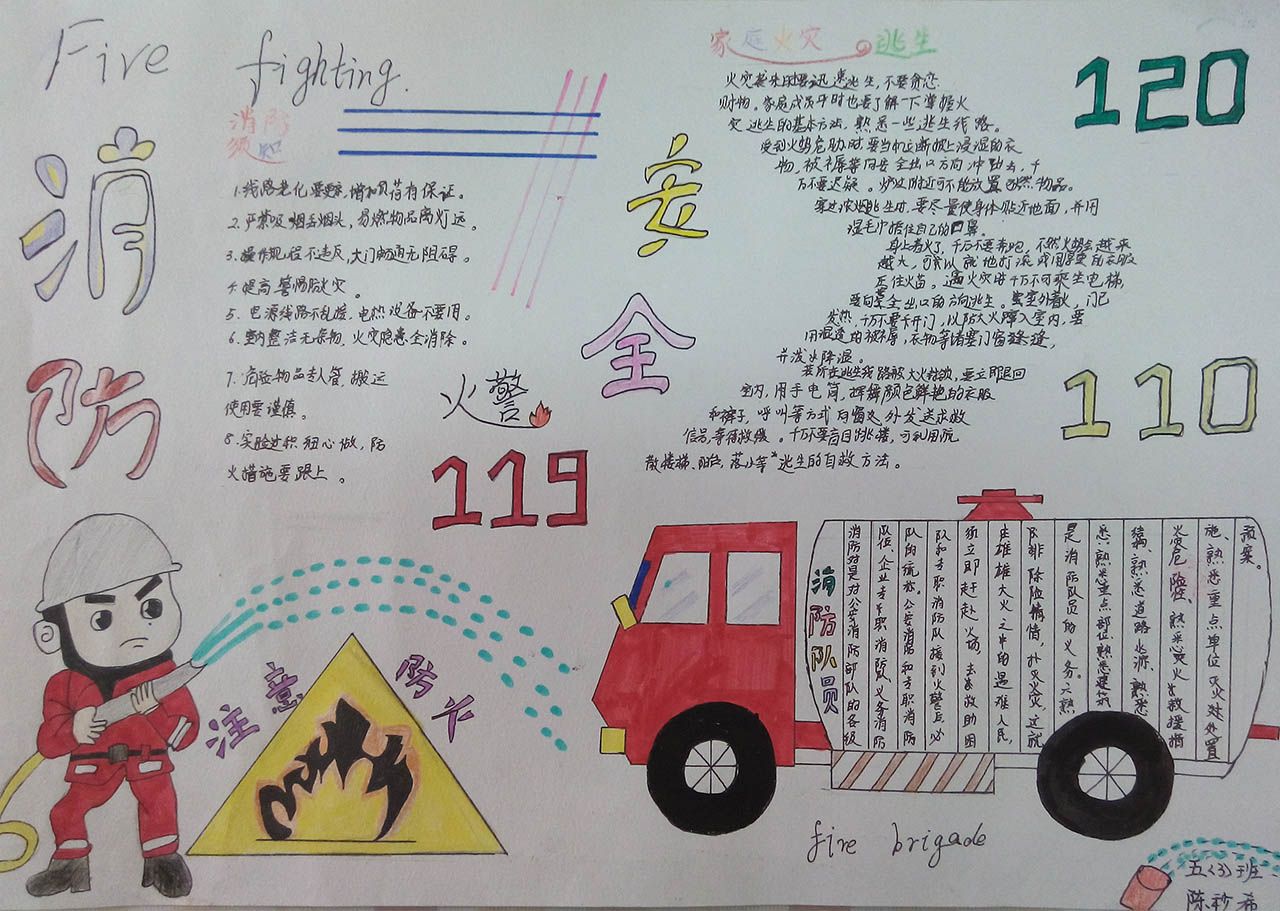 Fire fighting.
消防
安全
消防
须知
1.线路老化要更换,增加负荷有保证。
2.严禁吸烟丢烟头,易燃物品离灯远。
3.操作规程不违反,大门畅通无阻碍。
4.提高警惕防火灾。
5.电源线路不乱接,电热设备不要用。
6.室内整洁无杂物,火灾隐患全消除。
7.危险物品专人管,搬运
使用要谨慎。
8.实验过程细心做,防
火措施要跟上。
火警
119
家庭火灾逃生
火灾袭来时要迅速逃生,不要贪恋
财物。家庭成员平时也要了解一下掌握火
灾逃生的基本方法,熟悉一些逃生线路。
受到火势危胁时,要当机立断披上浸湿的衣
物,被褥等向安全出口方向冲出去,千
万不要迟疑。炉边附近可不能放置可燃物品。
穿过浓烟逃生时,要尽量使身体贴近地面,并用
湿毛巾捂住自己的口鼻。
身上着火了,千万不要奔跑,不然火势会越来
越大,可以就地打滚或用厚重的衣服
压住火苗。遇火灾时千万不可乘坐电梯,
要向安全出口的方向逃生。室外着火,门已
发热,千万不要开门,以防大火蹿入室内,要
用浸湿的被褥,衣物等堵塞门窗缝,
并泼水降湿。
若所在逃生线路被大火封锁,要立即退回
室内,用手电筒,挥舞颜色鲜艳的衣服
和裤子,呼叫等方式向窗外发送求救
信号,等待救援。千万不要盲目跳楼,可利用疏
散楼梯、阳台,落水等逃生的自救方法。
120
110
注意防火
消防队员
消防队是对公安消防部队的各级
队伍、企业专职消防队、义务消防
队的统称。公安消防和专职消防
队和专职消防队接到火警后必
须立即赶赴火场,去救助困
在雄雄大火之中的遇难人民,
排除险情,扑灭火灾,这就
是消防队员的义务。六熟
悉:熟悉重点部位熟悉建筑
结构、熟悉道路水源、熟悉
火灾危险、熟悉灭火救援措
施、熟悉重点单位灭火处外置
预案。
fire brigade
五(3)班
陈
希